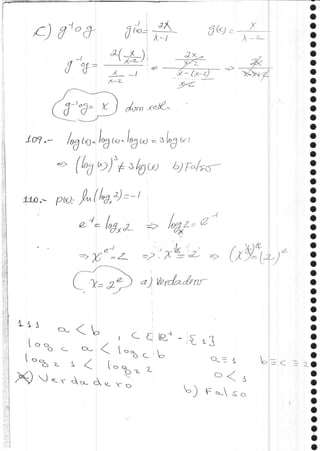 c) g⁻¹og   g⁻¹(x)= 2x/x-1   g(x) = x/x-2
g⁻¹og = 2(x/x-2) / x/x-2 -1 = 2x/x-2 / x-(x-2)/x-2 => 2x
g⁻¹og = x   dom
109.- log(x)·log(x)·log(x) = 3log(x)
=> (log(x))³ ≠ 3log(x)   b) Falso
110.-   ln(logₓ2)=-1
e⁻¹ = logₓ2 => logₓ2 = e⁻¹
=> x^e⁻¹ = 2 => x^1/e = 2 => (x^1/e)^e = (2)^e
x = 2^e   a) Verdadero
111   a < b   , c ∈ R⁺ - {1}
log c a < log c b   a = 1   b = c = 2
log 2 1 < log 2 2   0 < 1
a) Verdadero   b) Falso